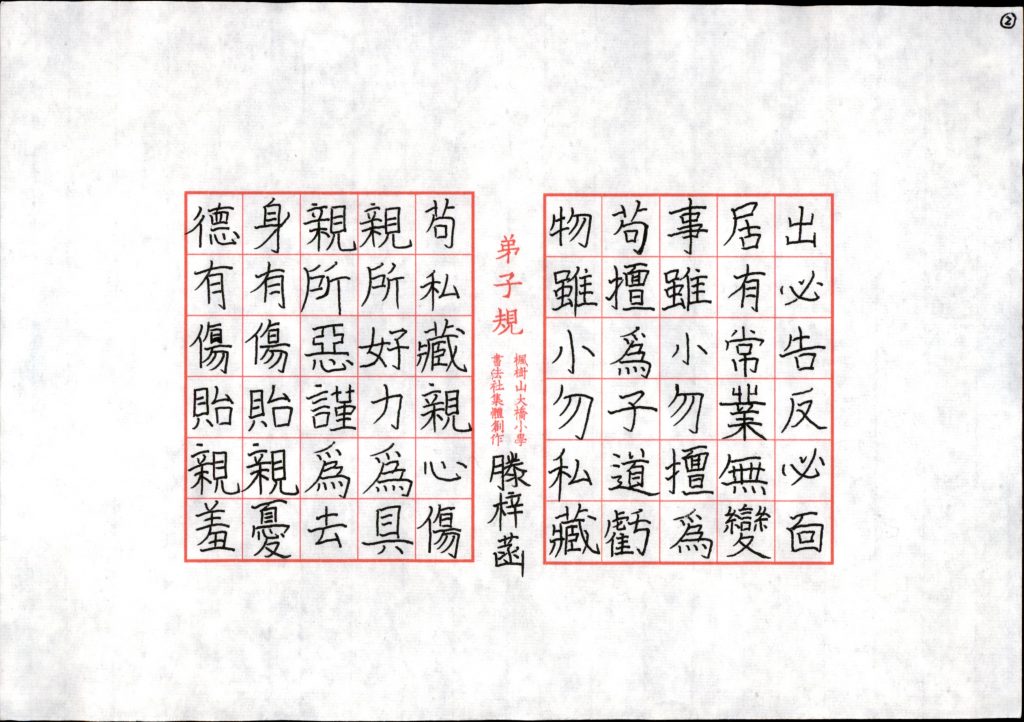 ②
出必告反必面
居有常業無變
事雖小勿擅為
苟擅為子道虧
物雖小勿私藏
弟子規
楓樹山大橋小學
書法社集體創作
滕梓菡
苟私藏親心傷
親所好力為具
親所惡謹為去
身有傷貽親憂
德有傷貽親羞